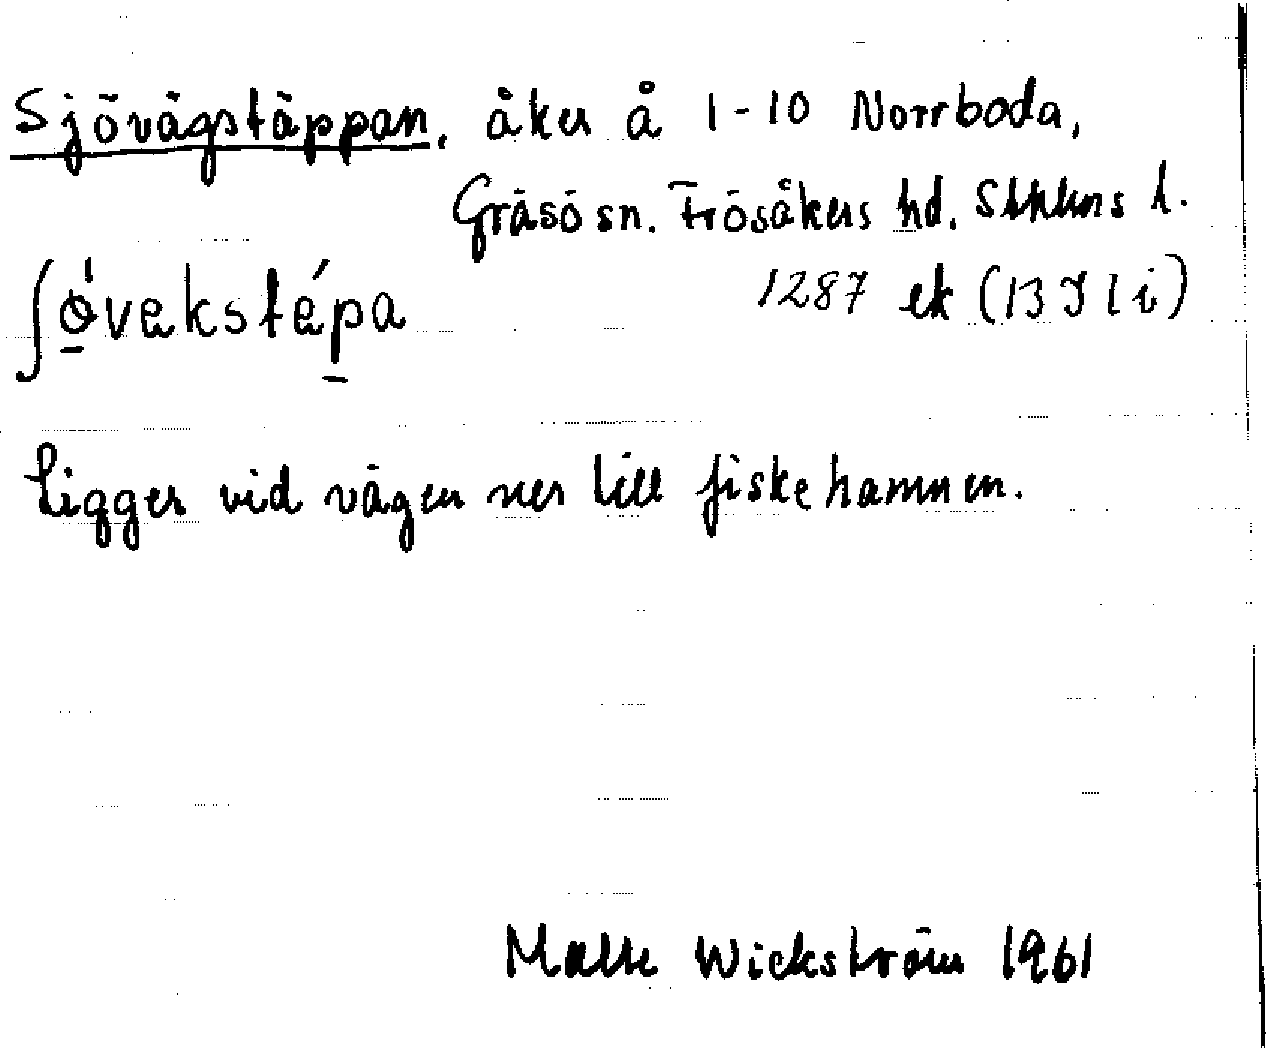 Sjövägstäppan, åker å 1-10 Norrboda,
Gräsö sn. Frösåkers hd. Sthlms l.
ʃǿ̱vekstép̱a 1287 ek (13 I 1 i)
Ligger vid vägen ner till fiskehamnen.
Malte Wickström 1961